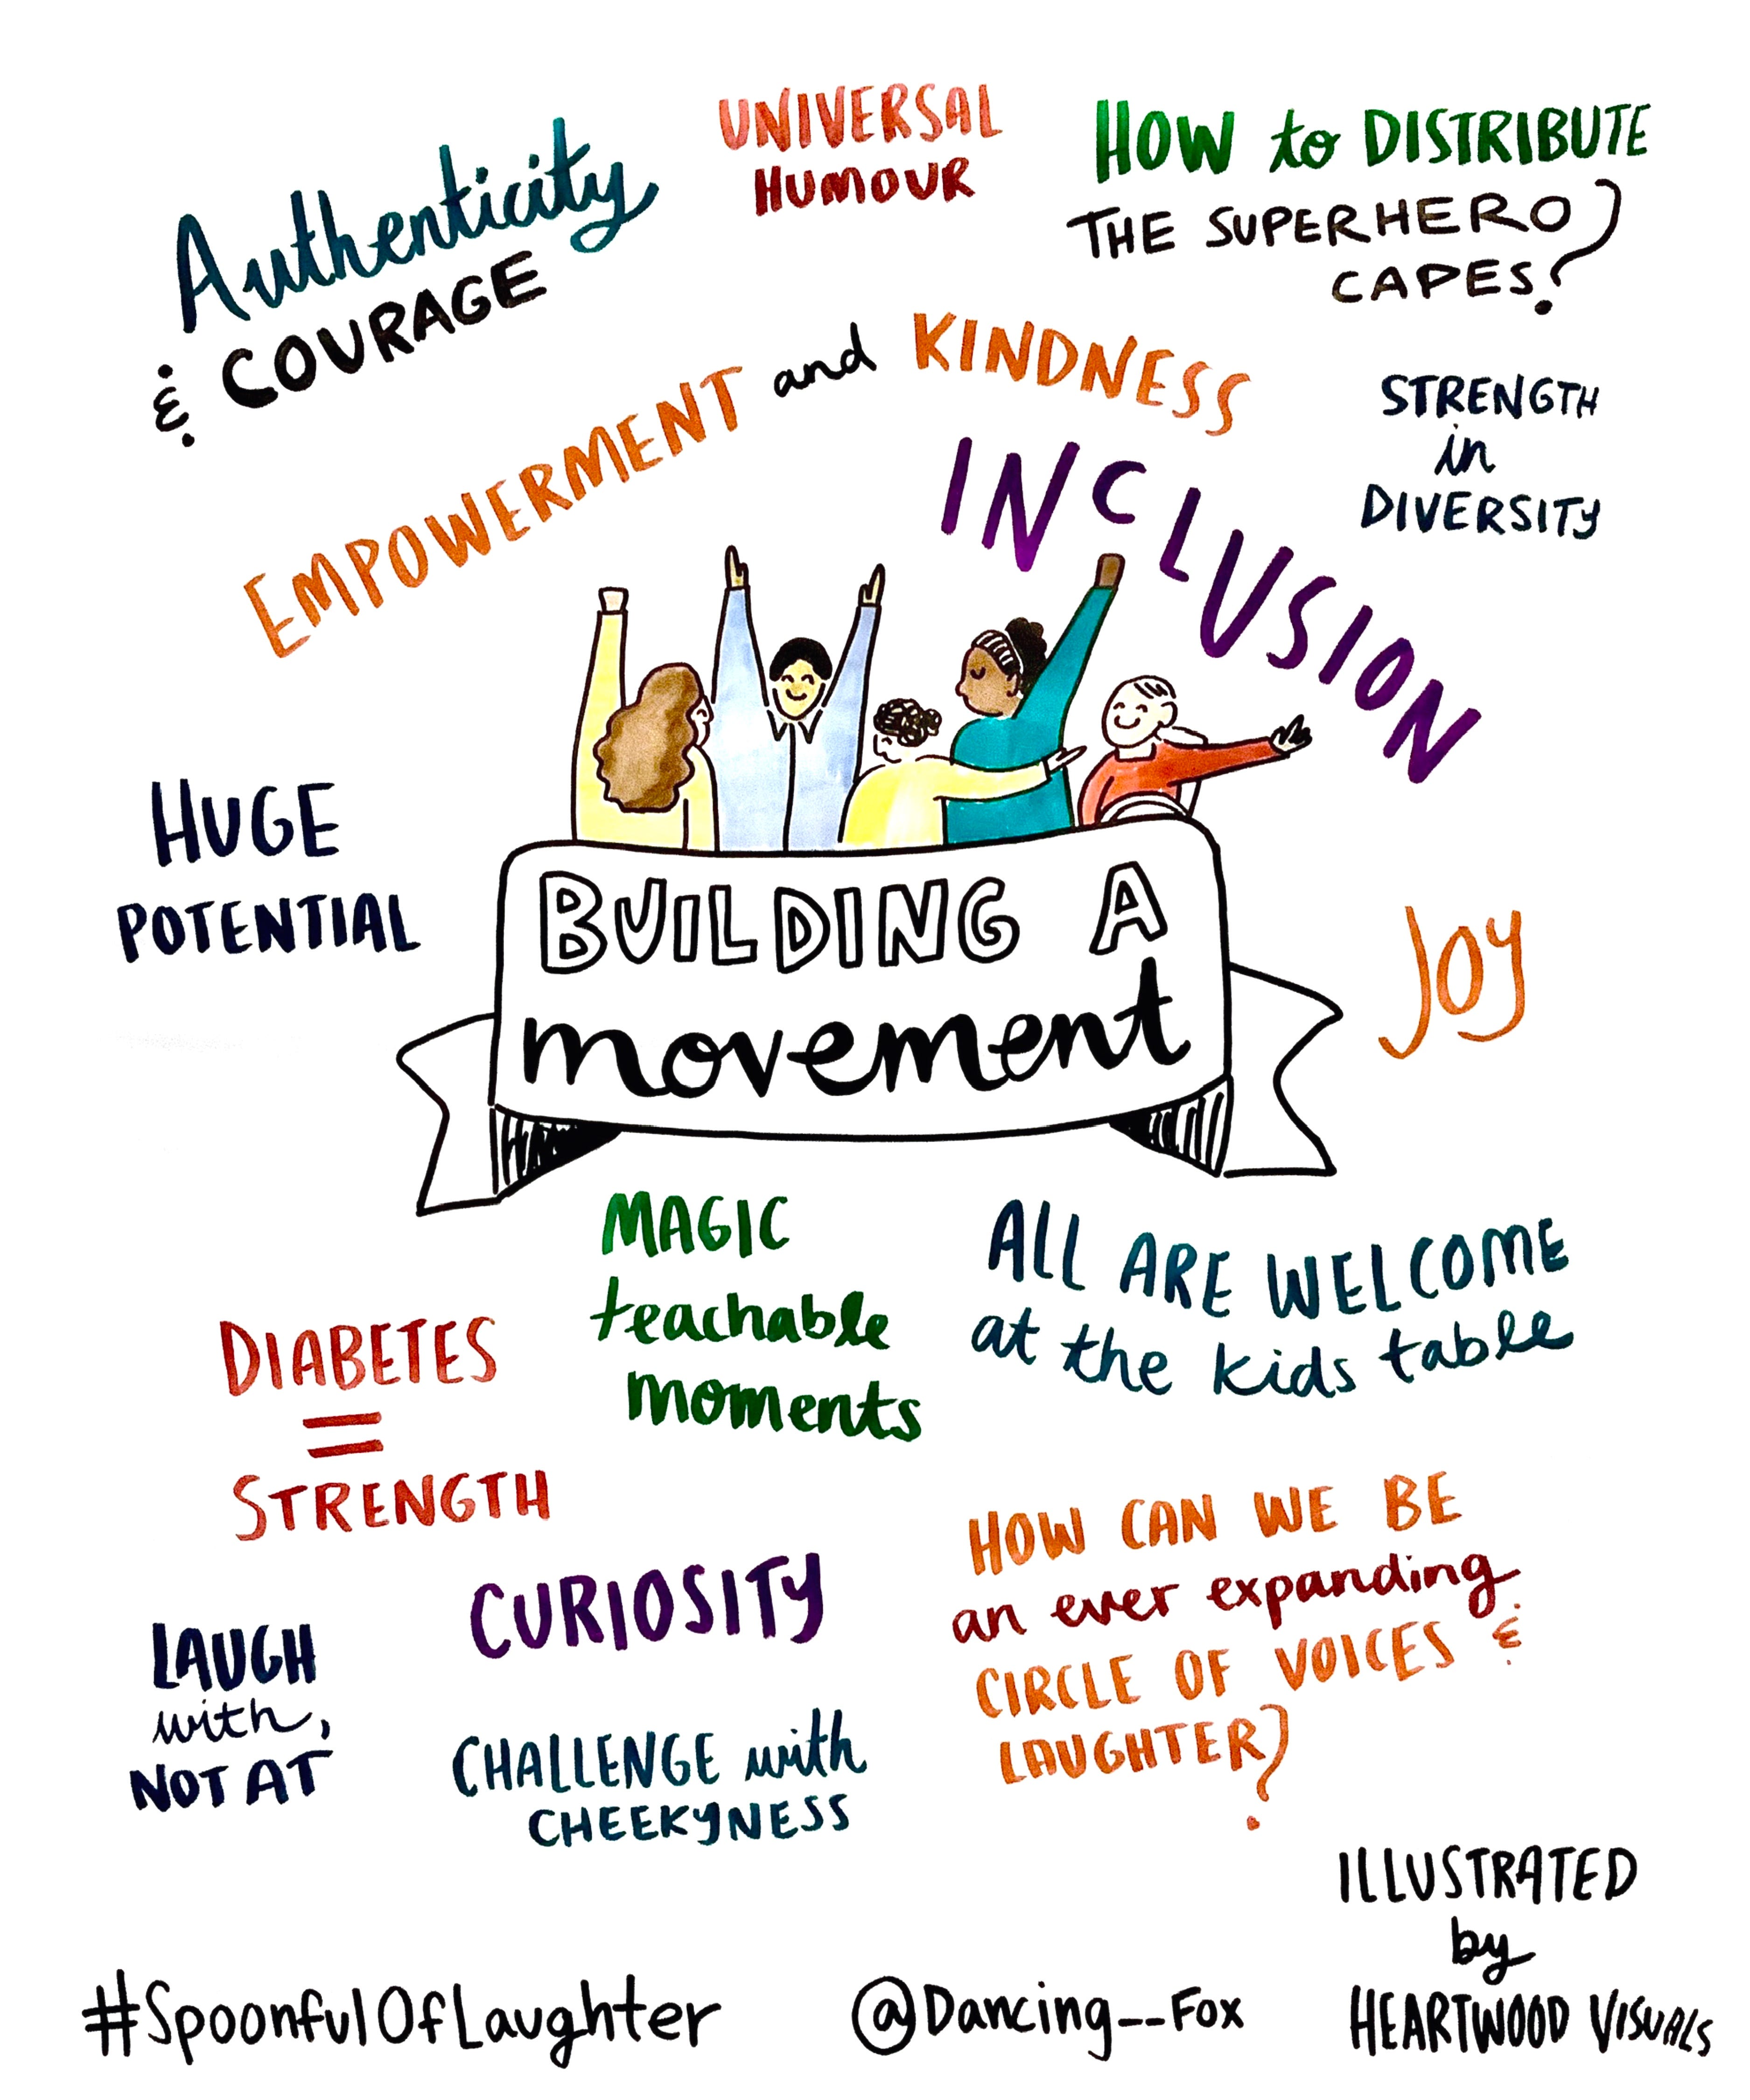 Authenticity
& COURAGE
UNIVERSAL
HUMOUR
HOW to DISTRIBUTE
THE SUPERHERO
CAPES?
EMPOWERMENT and KINDNESS
STRENGTH
in
DIVERSITY
INCLUSION
HUGE
POTENTIAL
BUILDING A
movement
JOY
MAGIC
teachable
moments
ALL ARE WELCOME
at the kids table
DIABETES
=
STRENGTH
HOW CAN WE BE
an ever expanding
CIRCLE OF VOICES &
LAUGHTER?
CURIOSITY
LAUGH
with,
NOT AT
CHALLENGE with
CHEEKYNESS
ILLUSTRATED
by
HEARTWOOD VISUALS
#SpoonfulOfLaughter
@Dancing__Fox